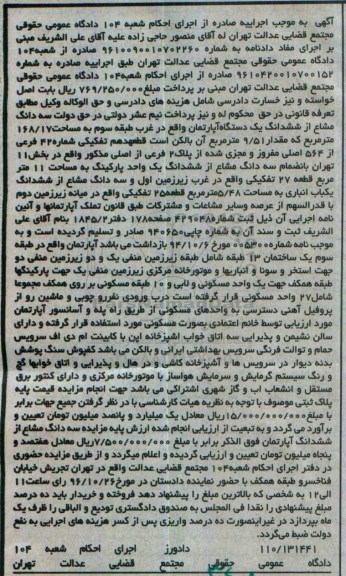 آگهی به موجب اجراییه صادره از اجرای احکام شعبه ۱۰۴ دادگاه عمومی حقوقی
مجتمع قضایی عدالت تهران له آقای منصور حاجی زاده علیه آقای علی الشریف مبنی
بر اجرای مفاد دادنامه به شماره ۹۶۱۰۰۹۰۰۱۰۷۰۲۲۶۰ صادره از شعبه۱۰۴
دادگاه عمومی حقوقی مجتمع قضایی عدالت تهران طبق اجراییه صادره به شماره
۹۶۱۰۴۲۰۰۱۰۷۰۰۱۵۲ صادره از اجرای احکام شعبه۱۰۴ دادگاه عمومی حقوقی
مجتمع قضایی عدالت تهران مبنی بر پرداخت مبلغ۷۶۹/۲۵۰/۰۰۰ ریال بابت اصل
خواسته و نیز خسارت دادرسی شامل هزینه های دادرسی و حق الوکاله وکیل مطابق
تعرفه قانونی در حق محکوم له و نیز پرداخت نیم عشر دولتی در حق دولت سه دانگ
مشاع از ششدانگ یک دستگاه‌آپارتمان واقع در غرب طبقه سوم به مساحت۱۶۸/۱۷
مترمربع که مقدار۹/۵۱ مترمربع آن بالکن است قطعهدهم تفکیکی شماره۴۲ فرعی
از ۵۶۴ اصلی مفروز و مجزی شده از پلاک۲ فرعی از اصلی مذکور واقع در بخش۱۱
تهران بانضمام سه دانگ مشاع از ششدانگ یک واحد پارکینگ به مساحت ۱۱ متر
مربع قطعه ۲۷ تفکیکی واقع در غرب زیرزمین اول و سه دانگ مشاع از ششدانگ
یکباب انباری به مساحت ۵/۴۸مترمربع قطعه۲۵ تفکیکی واقع در میانه زیرزمین دوم
با قدرالسهم از عرصه وسایر مشاعات و مشترکات طبق قانون تملک آپارتمانها و آئین
نامه اجرایی آن ذیل ثبت شماره۴۲۹۰۴۸ صفحه۱۷۸ دفتر۱۸۴۵/۲ بنام آقای علی
الشریف ثبت و سند آن به شماره چاپی۹۴۰۶۵۰ صادر و تسلیم گردیده است و به
موجب نامه شماره۰۰۵۳۰ مورخ ۹۴/۱۰/۶ بازداشت می باشد آپارتمان واقع در طبقه
سوم یک ساختمان ۱۳ طبقه شامل طبقه زیرزمین منفی یک و دو زیرزمین منفی دو
جهت استخر و سونا و انباریها و موتورخانه مرکزی زیرزمین منفی یک جهت پارکینگها
طبقه همکف جهت یک واحد مسکونی و لابی و ۱۰ طبقه مسکونی بر روی همکف مجموعا
شامل۲۷ واحد مسکونی قرار گرفته است درب ورودی نفررو چوبی و ماشین رو از
پروفیل آهنی دسترسی به واحدهای مسکونی از طریق راه پله و آسانسور آپارتمان
مورد ارزیابی توسط خانم اعتمادی بصورت مسکونی مورد استفاده قرار گرفته و دارای
سالن نشیمن و پذیرایی سه اتاق خواب اشپزخانه اپن با کابینت ام دی اف سرویس
حمام و توالت فرنگی سرویس بهداشتی ایرانی و بالکن می باشد کفپوش سنگ پوشش
بدنه دیوار در سرویس ها و آشپزخانه کاشی و در هال و پذیرایی و اتاق خوابها گچ
و رنگ سیستم گرمایش و سرمایش هواساز با موتورخانه مرکزی و دارای کنتور برق
مستقل و انشعاب اب و گاز شهری اشتراکی می باشد جهت انجام مزایده قیمت پایه
پلاک ثبتی موصوف با توجه به نظریه هیات کارشناسی با در نظر گرفتن جمیع جهات برابر
با مبلغ۱۵/۰۰۰/۰۰۰/۰۰۰ریال معادل یک میلیارد و پانصد میلیون تومان تعیین و
برآورد می گردد و به تبعیت از ارزیابی انجام شده ارزش پایه مزایده سه دانگ مشاع از
ششدانگ آپارتمان فوق الذکر برابر با مبلغ ۷/۵۰۰/۰۰۰/۰۰۰ریال معادل هفتصد و
پنجاه میلیون تومان تعیین و ارزیابی گردیده و اعلام میگردد و از طریق مزایده حضوری
در دفتر اجرای احکام شعبه۱۰۴ مجتمع قضایی عدالت واقع در تهران تجریش خیابان
فناخسرو طبقه همکف با حضور نماینده دادستان در مورخ۹۶/۱۰/۲۶ رای ساعت۱۱
الی۱۲ به شخصی که بالاترین مبلغ را پیشنهاد دهد فروخته و خریدار باید ده درصد
مبلغ پیشنهادی را نقدا فی المجلس به صندوق دادگستری تودیع و الباقی را ظرف یک
ماه بپردازد در غیراینصورت ده درصد واریزی پس از کسر هزینه های اجرایی به نفع
دولت ضبط می‌گردد.
۱۱۰/۱۳۱۴۴۱ دادورز اجرای احکام شعبه ۱۰۴
دادگاه عمومی حقوقی مجتمع قضایی عدالت تهران